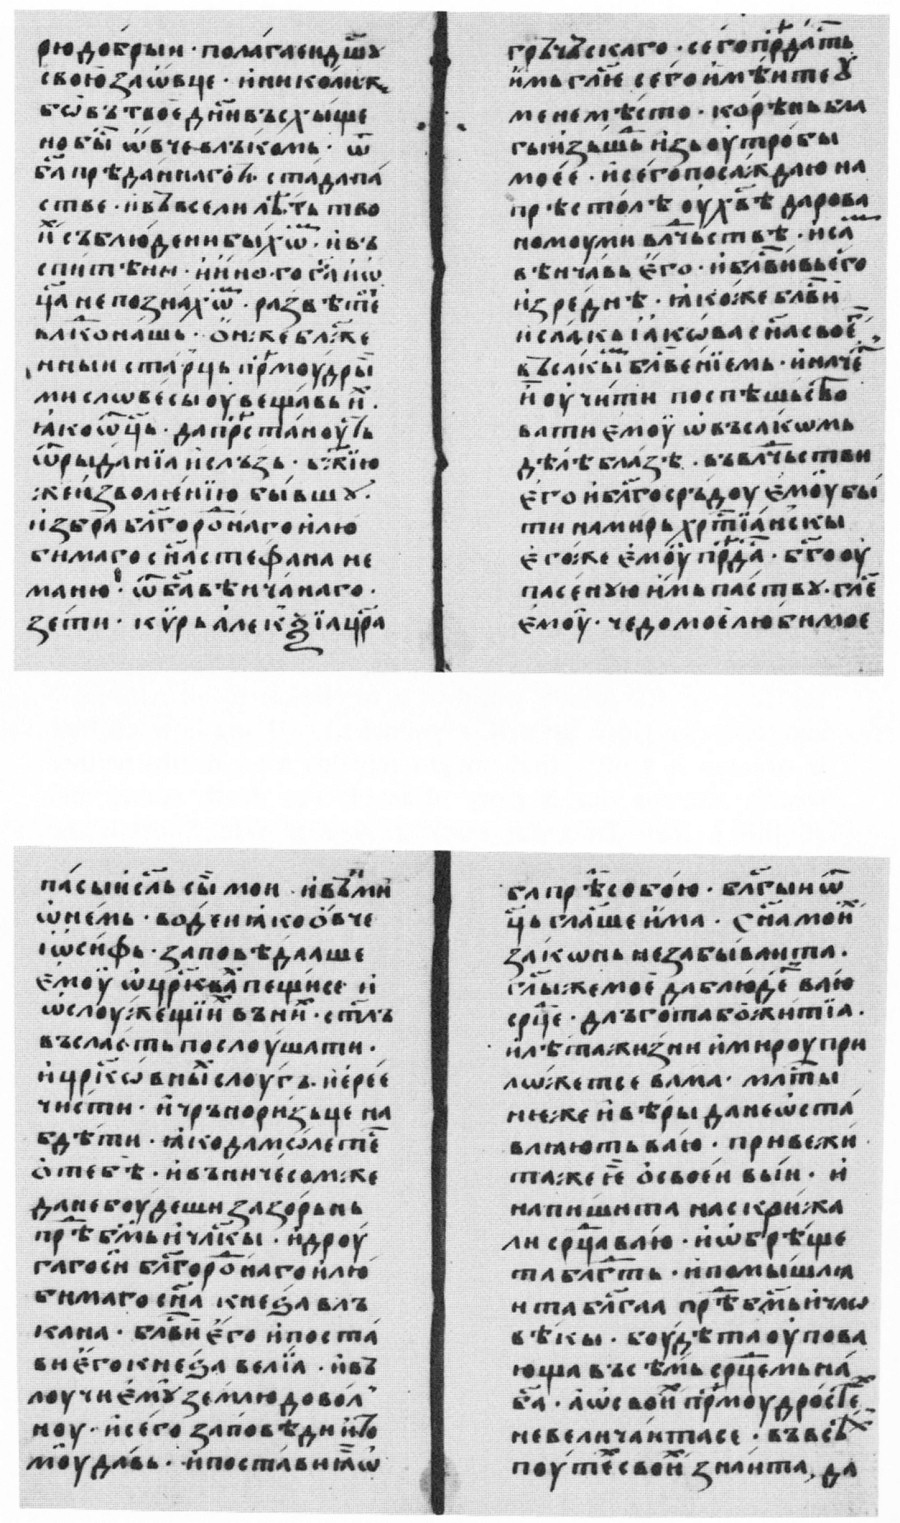 рю добрыи · полагаеи дш҃ꙋ
свою за ѡвце · и҆ни коли к
бѡ въ твоѐ дн҃и въсхыще
но бы҇ ѡвче влькомь · ѿ
ба҃ прѣданнаго ти стада па
стве · и҆ въвсели лѣть тво
и҆х съблюдени быхѡⷨ · и҆ въ
спитѣни · и҆ и҆но го сп҃а и҆ ѡ
ца҃ не познахѡⷨ · развѣ те
влⷣко нашь · ѻ҆н же блⷤже
нныи старць прⷨѣмоудры
ми словесы оувещавь и҆х ·
ꙗко ѿц҃ь · да прѣстаноуть
ѿ рыданїа и҆ сльзь · бж҃їю
же и҆зволюнїю бывшꙋ ·
и҆збра блг҃ороⷣнаго и҆ лю
бимаго сн҃а стефана не
маню · ѿ ба҃ вѣнчанаго ·
зети · кѵрь алеѯїа цр҃а
грьчьскаго · сего прⷣасть
и҆мь гл҃ѥ сего и҆мѣите ꙋ
мене мѣсто · корѣнь бла
гыи҆ изьшⷣь и҆зь оутробы
моѥе · и҆ сего посаждаю на
прѣстолѣ оу хв҃ѣ дарова
номоу ми влⷣчьствѣ · и҆ саⷨ
вѣнчавь ѥго · и҆ блⷭ҇вивь ѥго
и҆зреднѣ · ꙗкоже блⷭ҇ви
и҆саⷦ҇ь і҆акѡва сн҃а своѥ
въсакыⷨ блⷭ҇вениѥмь · и҆ наче
и҆ оучити поспѣшьство
вати ѥмоу ѡ въсакѡмь
дѣлѣ блазѣ · въ влⷣчьстви
ѥго и҆ блг҃осрьдоу ѥмоу бы
ти на мирь хрⷭ҇тїаньскы
ѥгоже ѥмоу прⷣа · б҃гоу
пасеную и҆мь паствꙋ · гл҃ѥ
ѥмоу · чедо моѥ любимое
пасы и҆сл҃ь сы мои · и҆ вънⷨми
ѡ нѥмь · водеи ꙗко ѻвче
і҆ѡсифь · заповѣдааше
ѥмоу ѡ цр҃квахь пещисе и҆
ѡ слоужещїих въ них · стл҃ь
въсласть послоушати ·
и҆ цр҃ковныѥ слоугь · и҆ѥрее
чисти · и҆ чрьноризьце на
бдѣти · ꙗко да молетсе
ѻ҆ тебѣ · и҆ вь ничесомже
да не боудеши зазорьнь
прѣⷣ бм҃ь и҆ чл҃кы · и҆ дроу
гаго си блг҃ороⷣнаго и҆ лю
бимаго сн҃а кнеза вль
кана · блⷭ҇ви ѥго и҆ поста
ви ѥго кнеза велїа · и҆ въ
лоучи ѥмꙋ землю довол
ноу · и҆ сего заповѣди ѥ
моу давь · и҆ постави ꙗ ѡ
ба прѣⷣ собою · блг҃ыи ѿ
ць гл҃аше и҆ма · сн҃а моꙗ
закѡнь не забываита ·
гл҃ы же моѥ да блюдеть ваю
срц҃е · дльгота бо житїа ·
и҆ лѣта жизни и҆ мирь при
ложетсе вама · млⷭ҇ты
ни же и҆ вѣры да не ѡста
влꙗють ваю · привежи
та же ѥ ѻ҆ своѥи выи · и҆
напишита на скрижа
ли срц҃а ваю · и҆ ѡбрѣще
та блгⷣть · и҆ помышлꙗ
ита блг҃аа прѣⷣ бм҃ь и҆ члѡ
вѣкы · боудѣта оупова
юща въсѣмь срⷣцемь на
ба · а҆ ѡ своѥи прѣмоудрости
не величаитасе · въ всѣхь
поутехь своих знаита, да